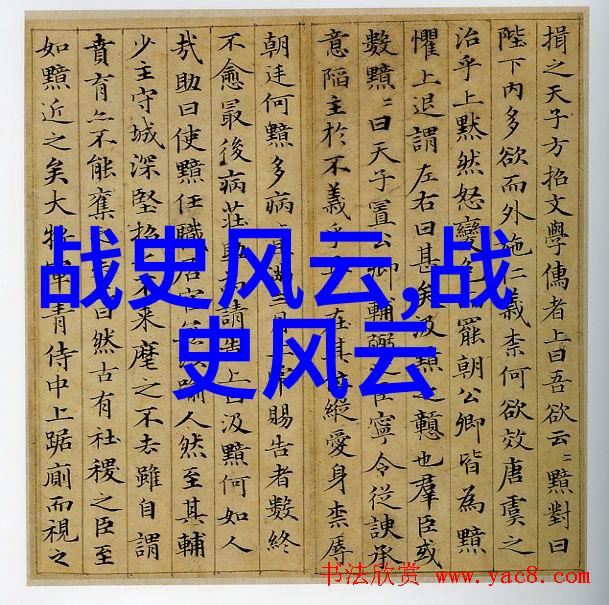 損之天子方招文學儒者上曰吾欲云〻黯對曰
陛下內多欲而外施仁義柰何欲效唐虞之
治乎上默然怒變色罷朝公卿皆為黯
懼上退謂左右曰甚矣汲黯之戇也羣臣或
數黯〻曰天子置公卿輔弼之臣寧令從諛承
意陷主於不義乎在其位縱愛身柰辱
朝廷何黯多病三月上常賜告者數終
不愈最後病莊助為請告上曰汲黯何如人
哉助曰使黯任職居官無以踰人然至其輔
少主守城深堅招之不來麾之不去雖自謂
賁育亦不能奪之曰然古有社稷之臣至
如黯近之矣大將軍青侍中上踞廁而視之
战史风云,战
史风云
书法欣赏 www.yac8.com